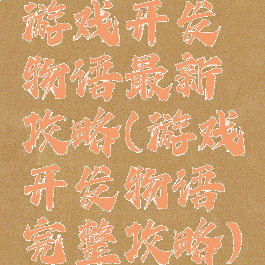 游戏开发
物语最新
攻略(游戏
开发物语
完整攻略)